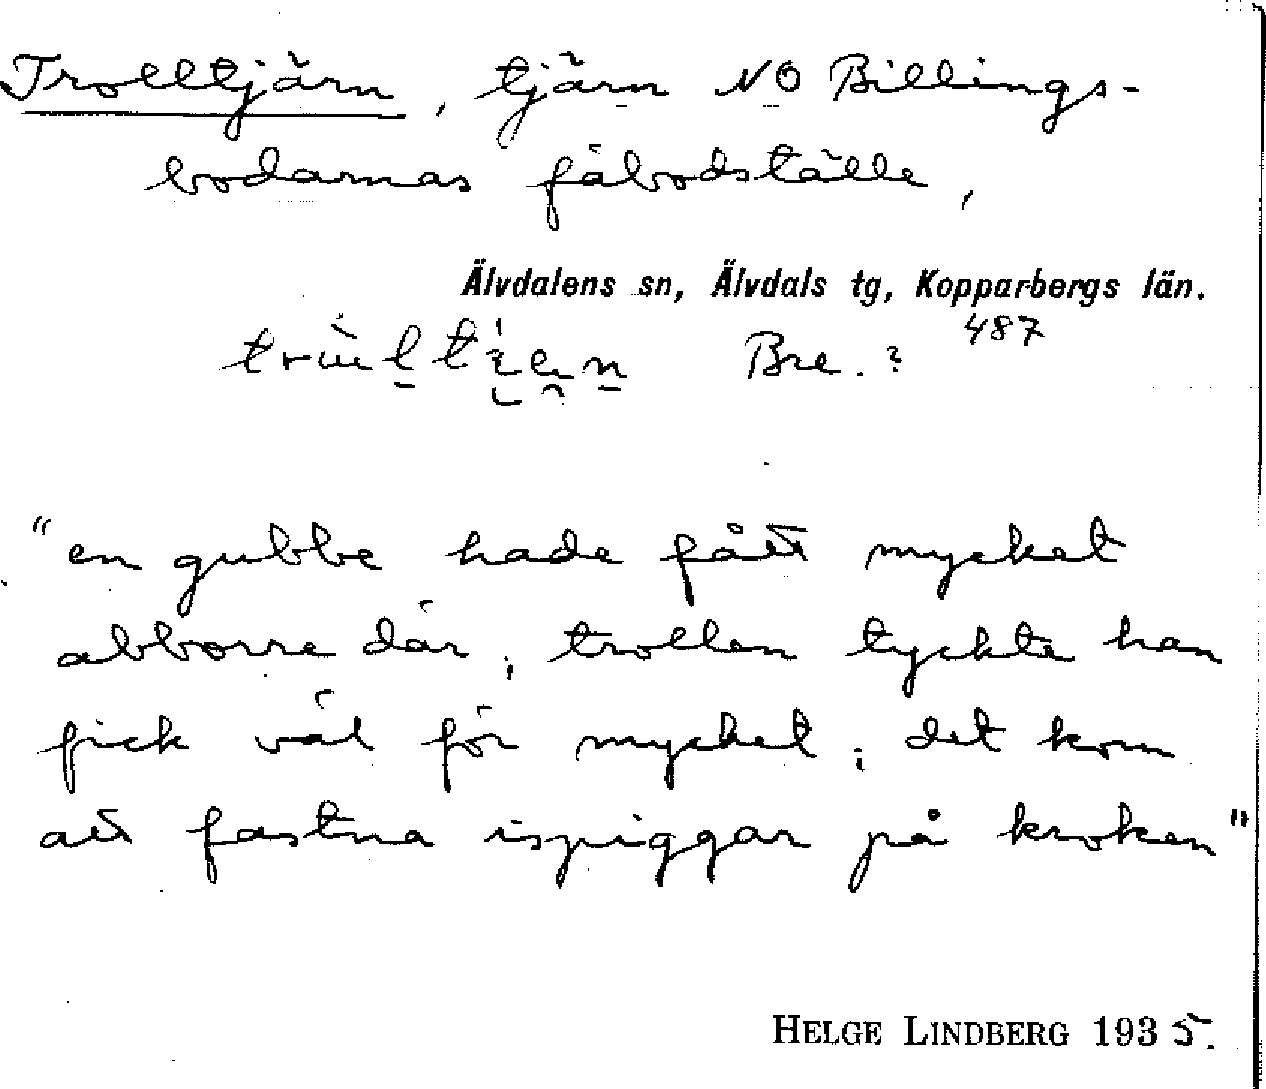 Trolltjärn, tjärn NO Billings-
bodarnas fäbodställe,
Älvdalens sn, Älvdals tg, Kopparbergs län.
487
Bre. ?
"en gubbe hade fått mycket
abborre där; trollen tyckte han
fick väl för mycket; det kom
att fastna ispiggar på kroken"
HELGE LINDBERG 1935.